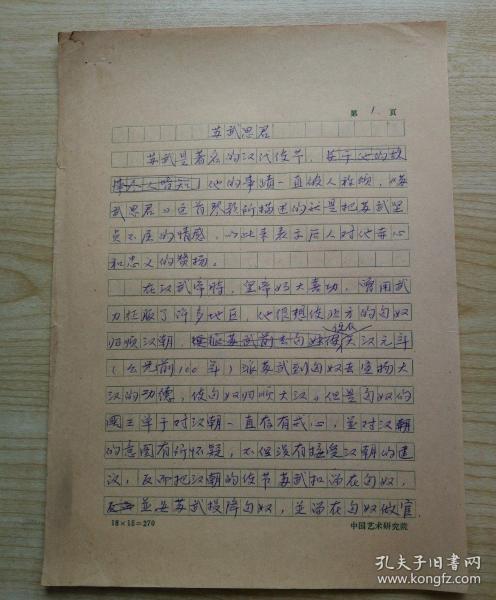 第 1 頁
苏武思君
苏武是著名的汉代使节，关于他的故
事人人皆知，他的事蹟一直被人称颂，《苏
武思君》这首琴歌所描述的就是把苏武坚
贞不屈的情感，以此来表示后人对他忠心
和忠义的赞扬。
在汉武帝时，皇帝好大喜功，曾用武
力征服了许多地区，他很想使北方的匈奴
归顺汉朝，苏武前去匈奴 汉元年
（公元前100年）派苏武到匈奴去宣扬大
汉的功德，使匈奴归顺大汉。但是匈奴的
國王单于对汉朝一直存有戒心，並对汉朝
的意图有所怀疑，不但没有接受汉朝的建
议，反而把汉朝的使节苏武扣留在匈奴，
並要苏武投降匈奴，並留在匈奴做官
18×15=270
中国艺术研究院
孔夫子旧书网
www.kongfz.com